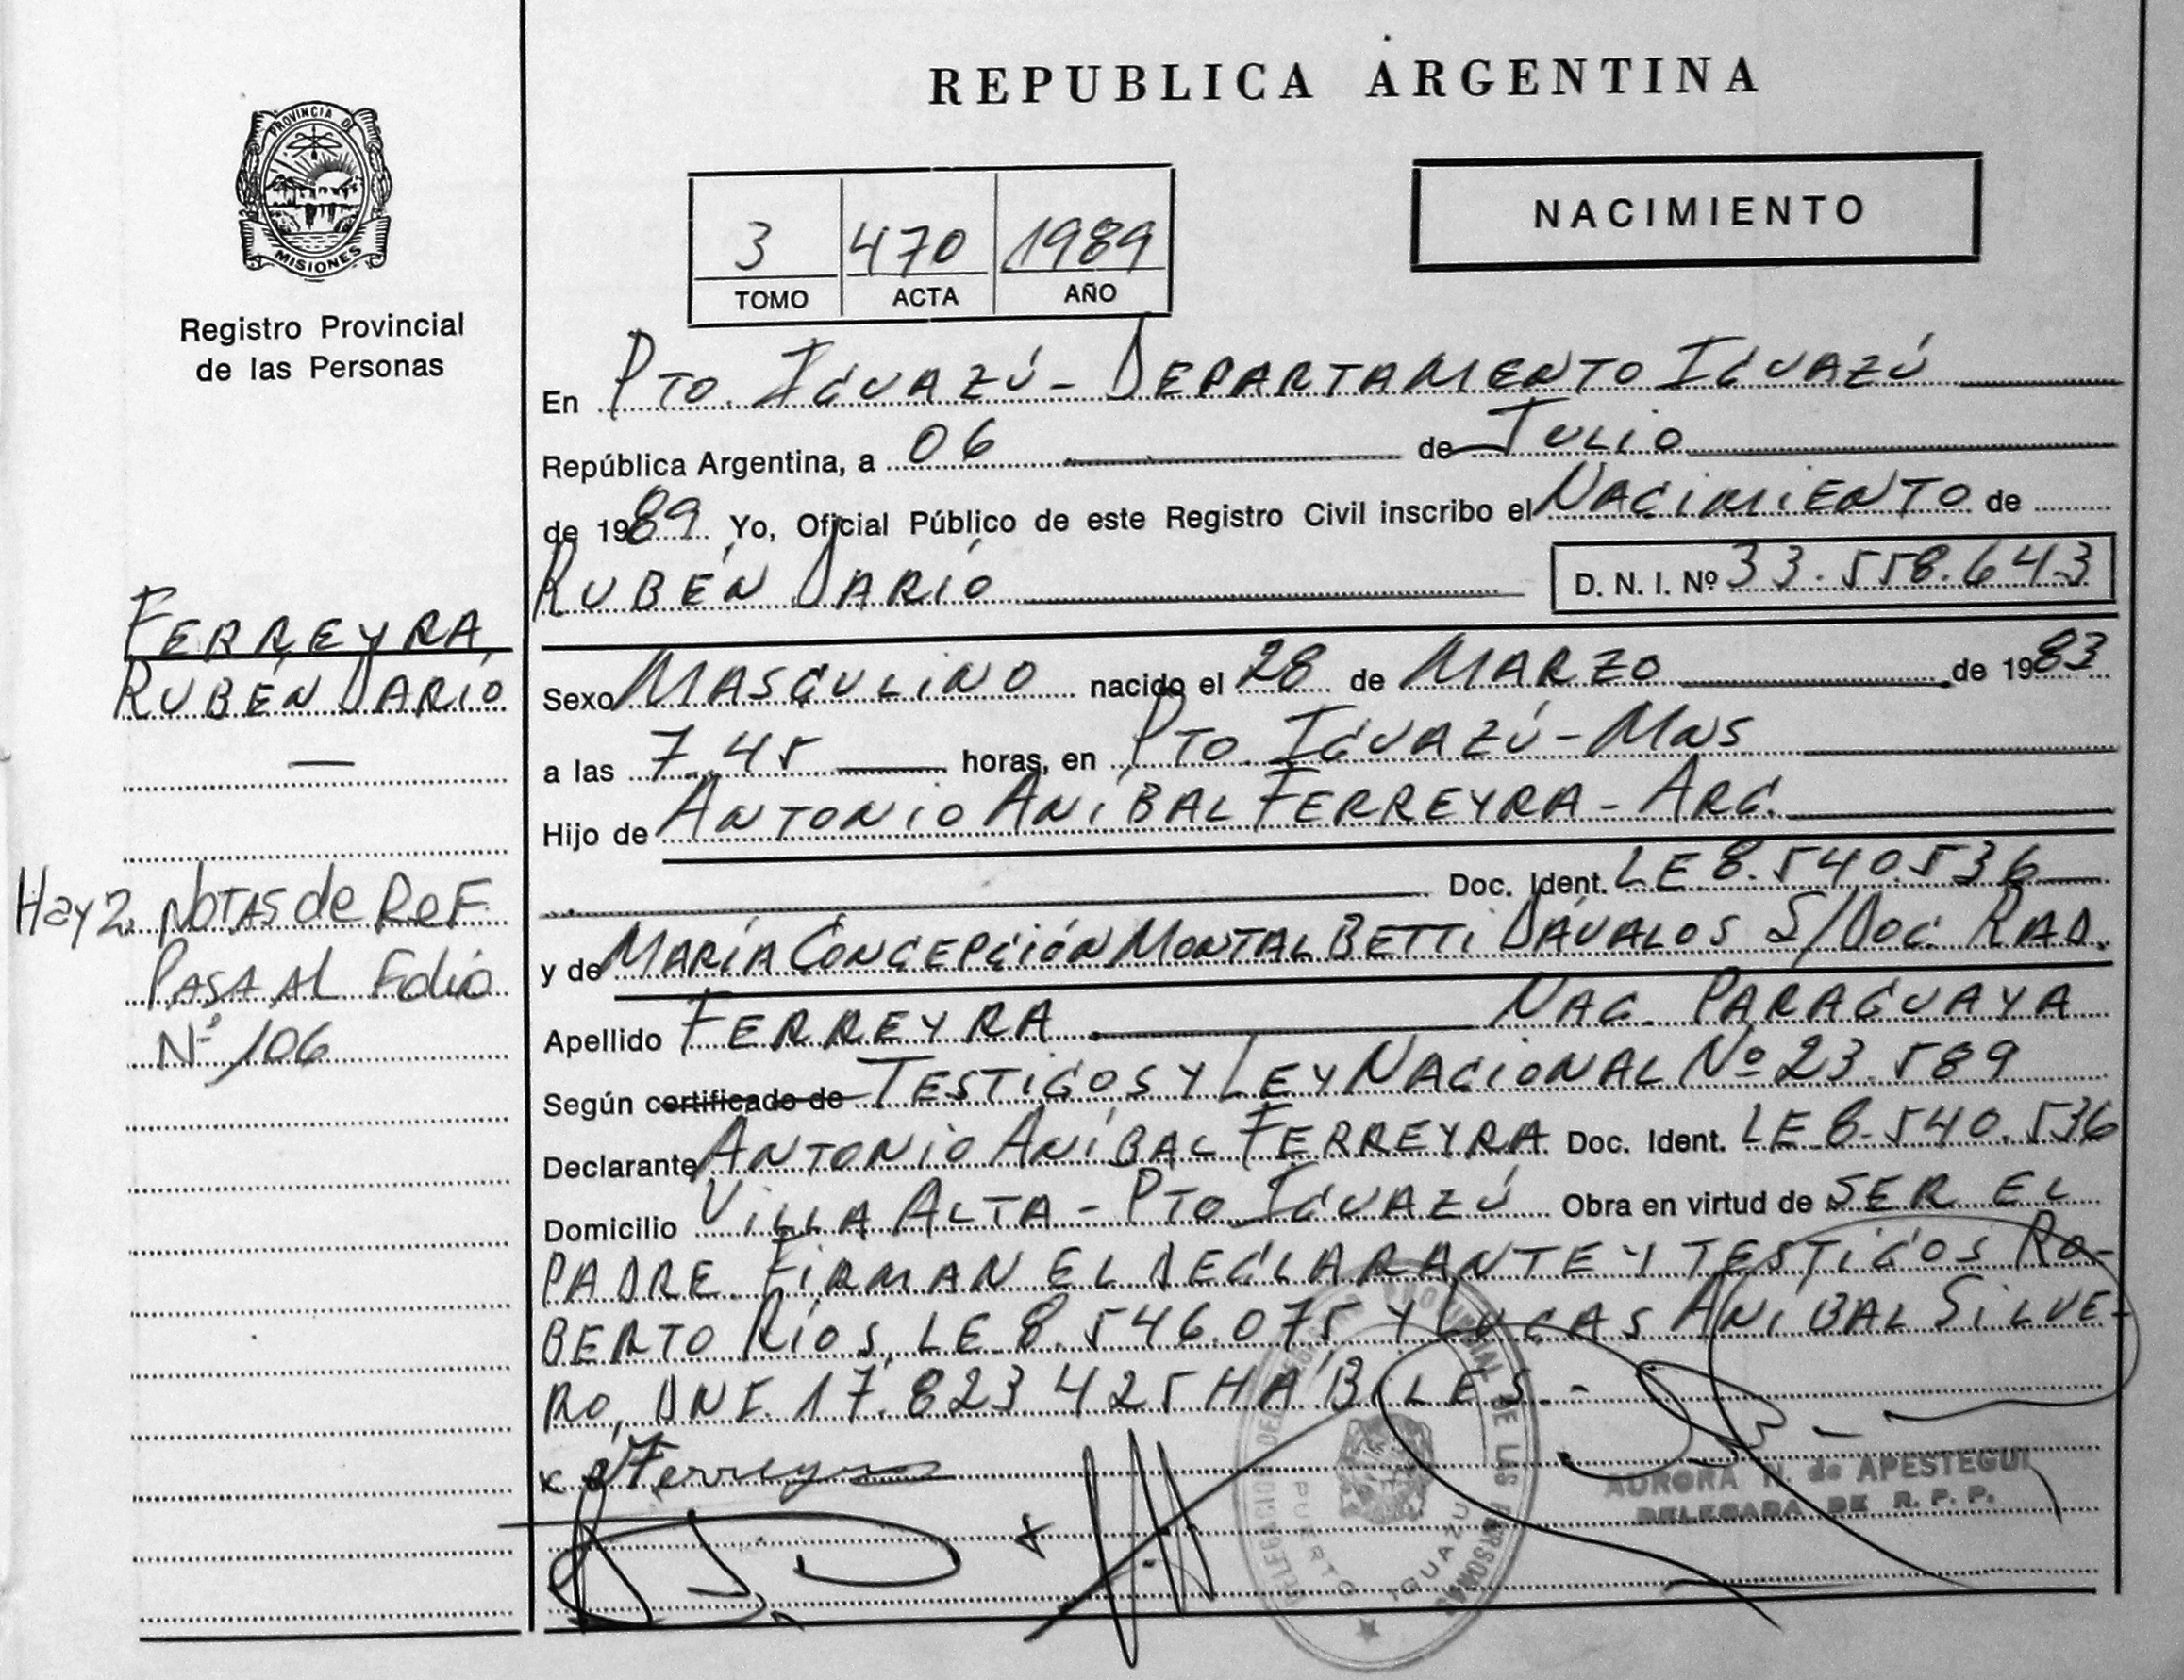 REPUBLICA ARGENTINA
PROVINCIA DE
MISIONES
Registro Provincial
de las Personas
NACIMIENTO
3 470 1989
TOMO ACTA AÑO
En Pto. Iguazú - Departamento Iguazú
República Argentina, a 06 de Julio
de 1989 Yo, Oficial Público de este Registro Civil inscribo el Nacimiento de
Rubén Darío D. N. I. Nº 33.558.643
Ferreyra,
Rubén Darío
Sexo Masculino nacido el 28 de Marzo de 1983
a las 7.45 horas, en Pto. Iguazú - Mns
Hijo de Antonio Aníbal Ferreyra - Arg.
Doc. Ident. LE 8.540.536
Hay 2 Notas de Ref.
Pasa al Folio
Nº 106
y de María Concepción Montal Betti Dávalos S/Doc. Rad.
Apellido Ferreyra Nac. Paraguaya
Según certificado de Testigos y Ley Nacional Nº 23.589
Declarante Antonio Aníbal Ferreyra Doc. Ident. LE 8.540.536
Domicilio Villa Alta - Pto Iguazú Obra en virtud de ser el
padre. Firman el declarante y testigos Ro-
berto Ríos, LE 8.546.075 y Lucas Aníbal Silve-
ro, DNI. 17.823.425 hábiles.-
x Ferreyra
AURORA N. de APESTEGUI
DELEGADA DE R. P. P.
DELEGACION DEL REGISTRO PROVINCIAL DE LAS PERSONAS
PUERTO IGUAZU